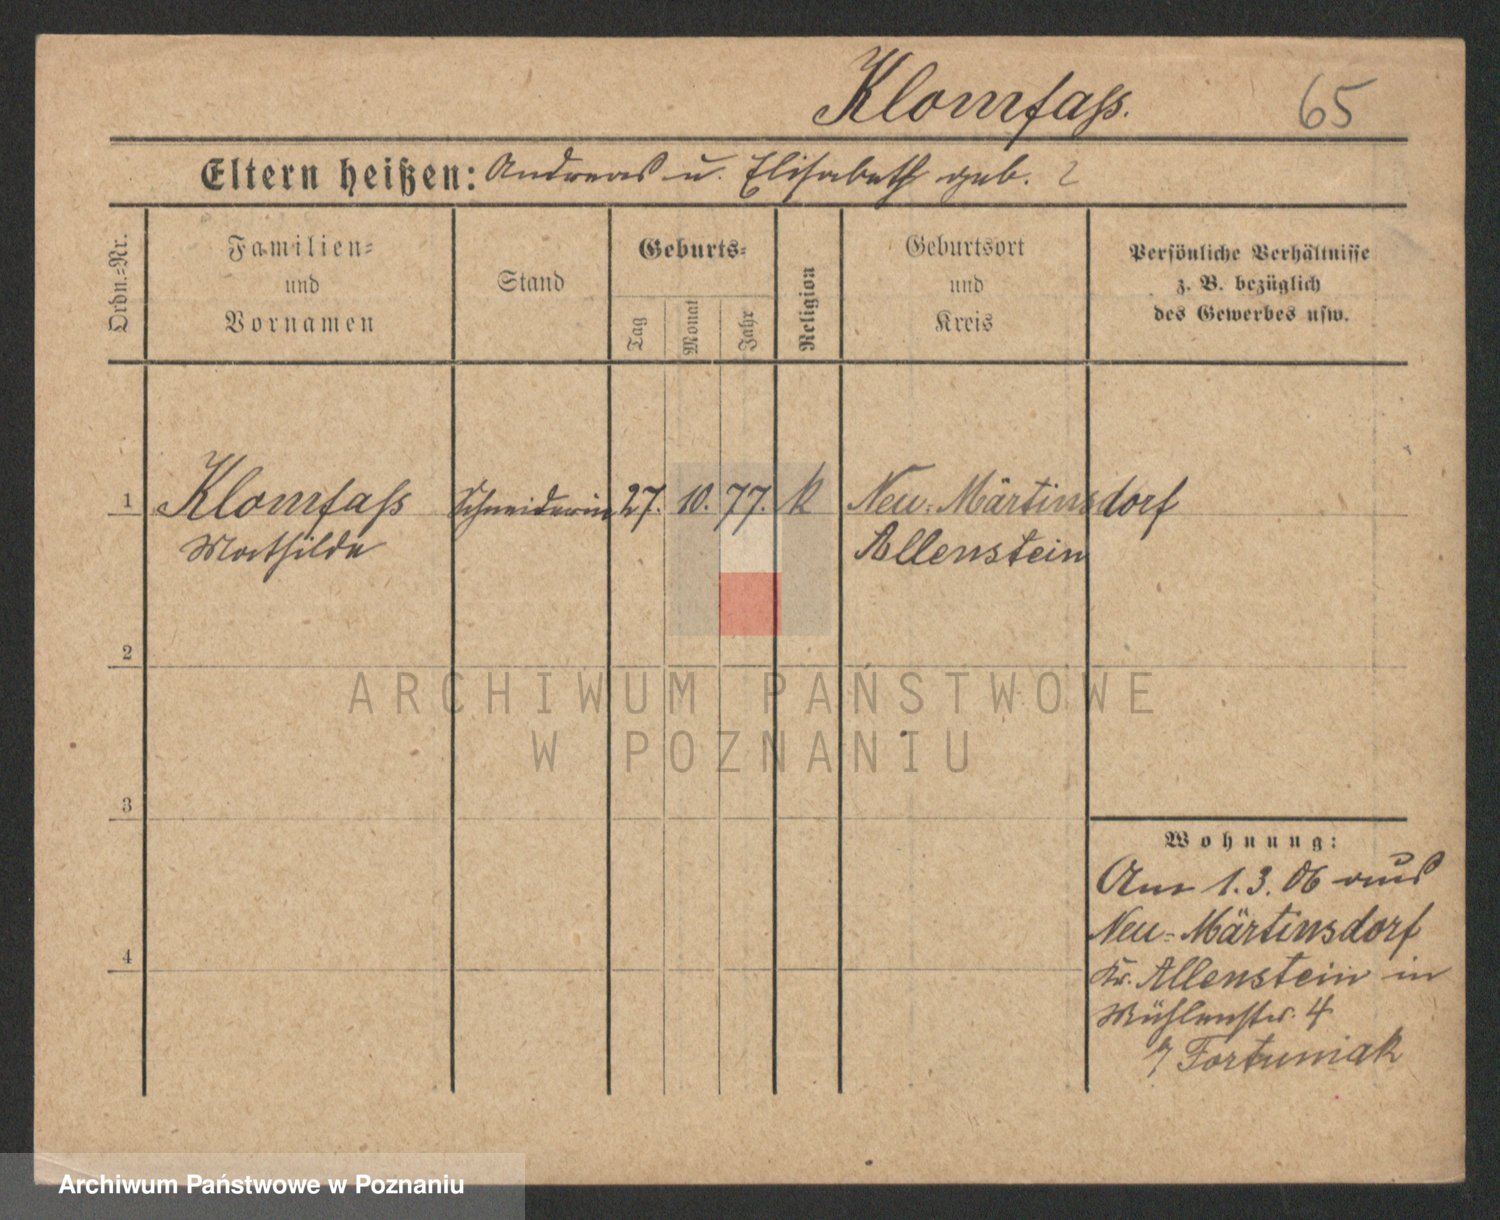 Klomfaß. 65
Eltern heißen: Andreas u. Elisabeth geb. ?
Ordn.-Nr.
Familien-
und
Vornamen
Stand
Geburts-
Tag
Monat
Jahr
Religion
Geburtsort
und
Kreis
Persönliche Verhältnisse
z. B. bezüglich
des Gewerbes usw.
1 Klomfaß Schneiderin 27. 10. 77. k Neu-Märtinsdorf
Mathilde Allenstein
2
ARCHIWUM PAŃSTWOWE
W POZNANIU
3
Wohnung:
Am 1.3.06 aus
Neu-Märtinsdorf
4
Kr. Allenstein in
Mühlenstr. 4
Fortuniak
Archiwum Państwowe w Poznaniu